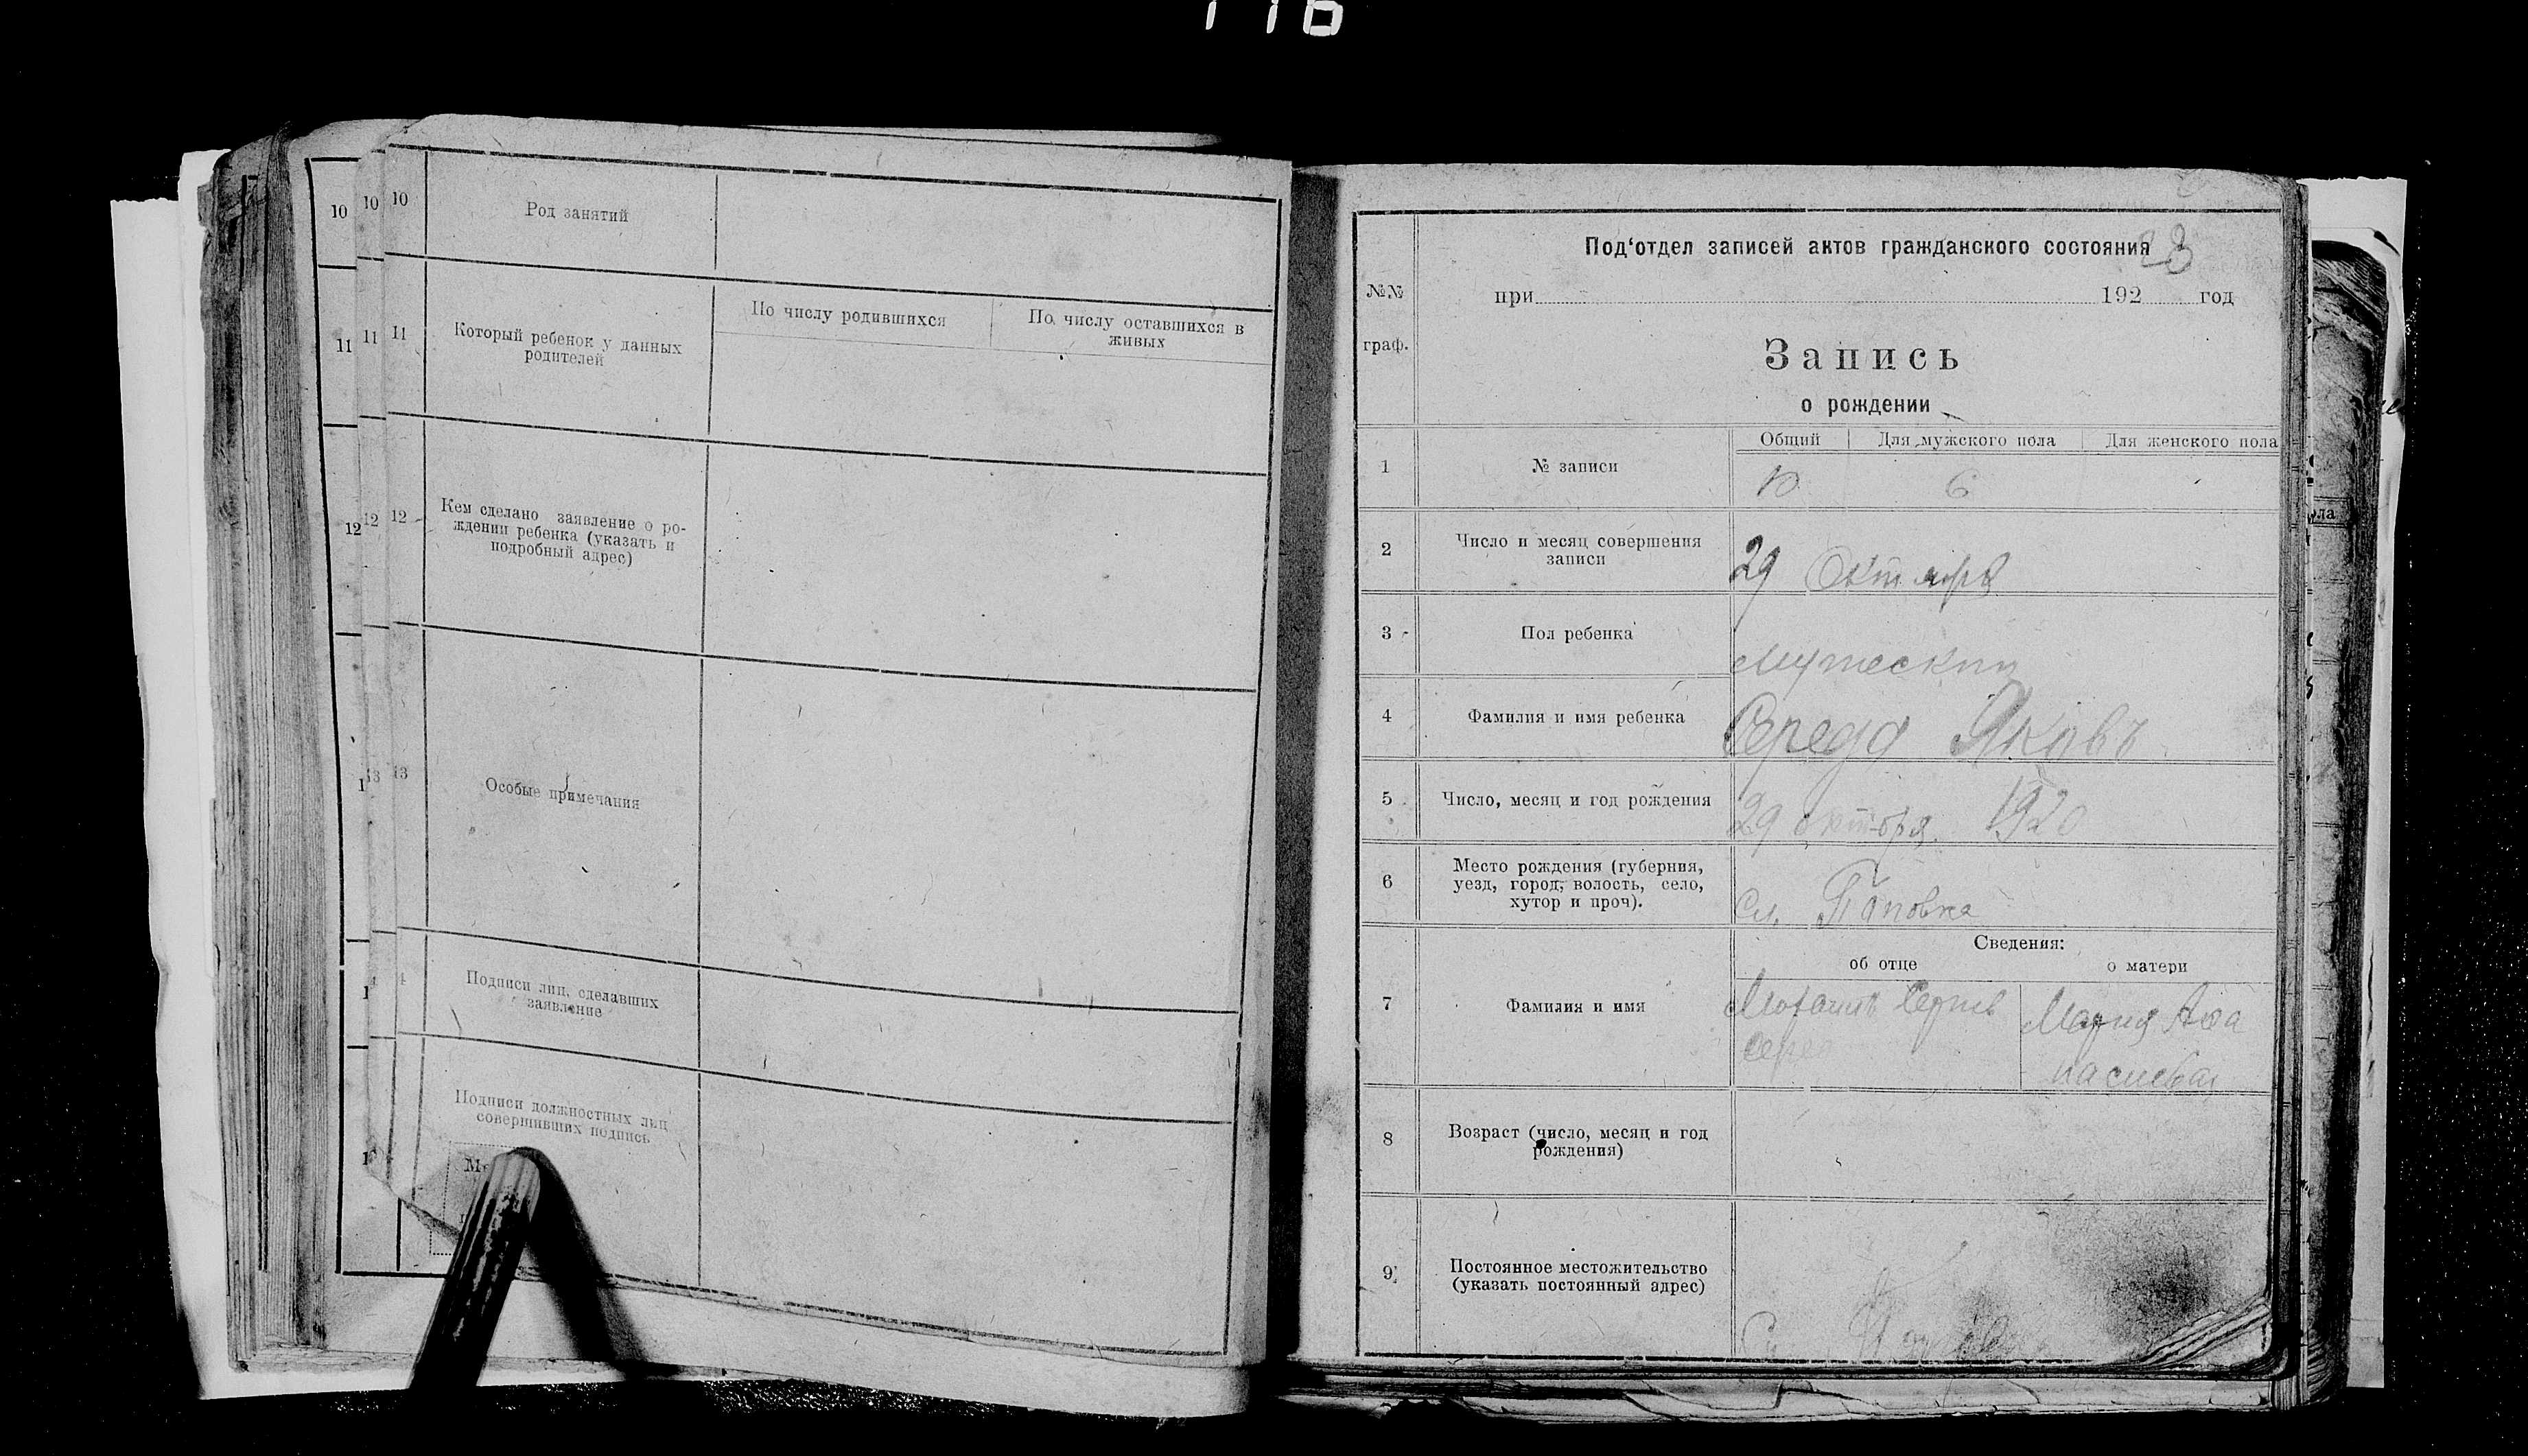 10 10 10 Род занятий
11 11 11 Который ребенок у данных
родителей
По числу родившихся
По числу оставшихся в
живых
12 12 12 Кем сделано заявление о ро-
ждении ребенка (указать и
подробный адрес)
13 13 Особые примечания
Подписи лиц, сделавших
заявление
Подписи должностных лиц
совершивших подпись
Под‘отдел записей актов гражданского состояния
№№
граф.
при 192 год
Запись
о рождении
1 № записи
Общий Для мужского пола Для женского пола
10 6
2 Число и месяц совершения
записи
29
3 Пол ребенка
4 Фамилия и имя ребенка
Середа Яковъ
5 Число, месяц и год рождения
29 октября 1920
6 Место рождения (губерния,
уезд, город, волость, село,
хутор и проч).
Сл. Поповка
Сведения:
об отце о матери
7 Фамилия и имя
Мария
8 Возраст (число, месяц и год
рождения)
9 Постоянное местожительство
(указать постоянный адрес)